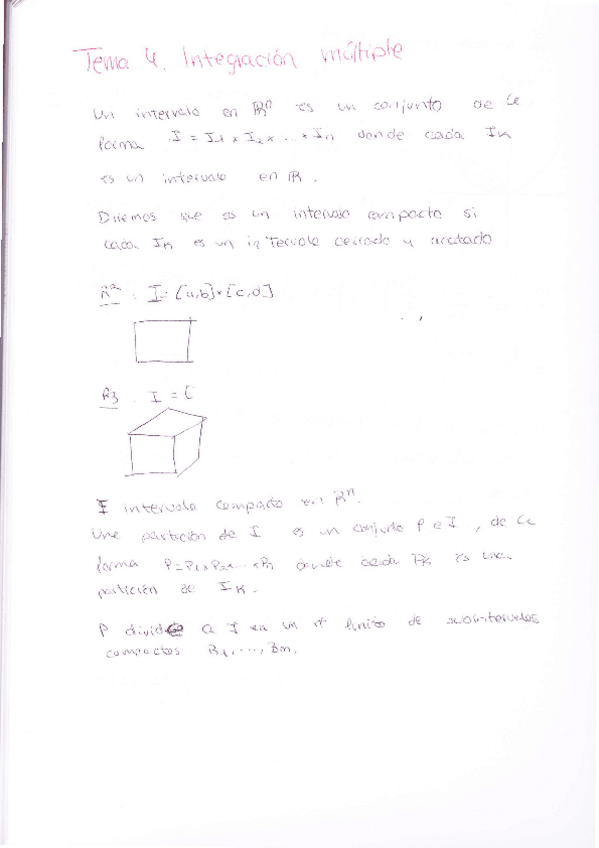 Tema 4. Integración múltiple
Un intervalo en ℝⁿ es un conjunto de la
forma I = I₁ × I₂ × ... × Iₙ donde cada Iₖ
es un intervalo en ℝ.
Diremos que es un intervalo compacto si
cada Iₖ es un intervalo cerrado y acotado
ℝ². I = [a,b]×[c,d]
ℝ3. I = [
I intervalo compacto en ℝⁿ.
Una partición de I es un conjunto P e I, de la
forma P=P₁×P₂×...×Pₙ donde cada Pₖ es una
partición de Iₖ.
P divide a I en un nº finito de subintervalos
compactos B₁,...,Bm.